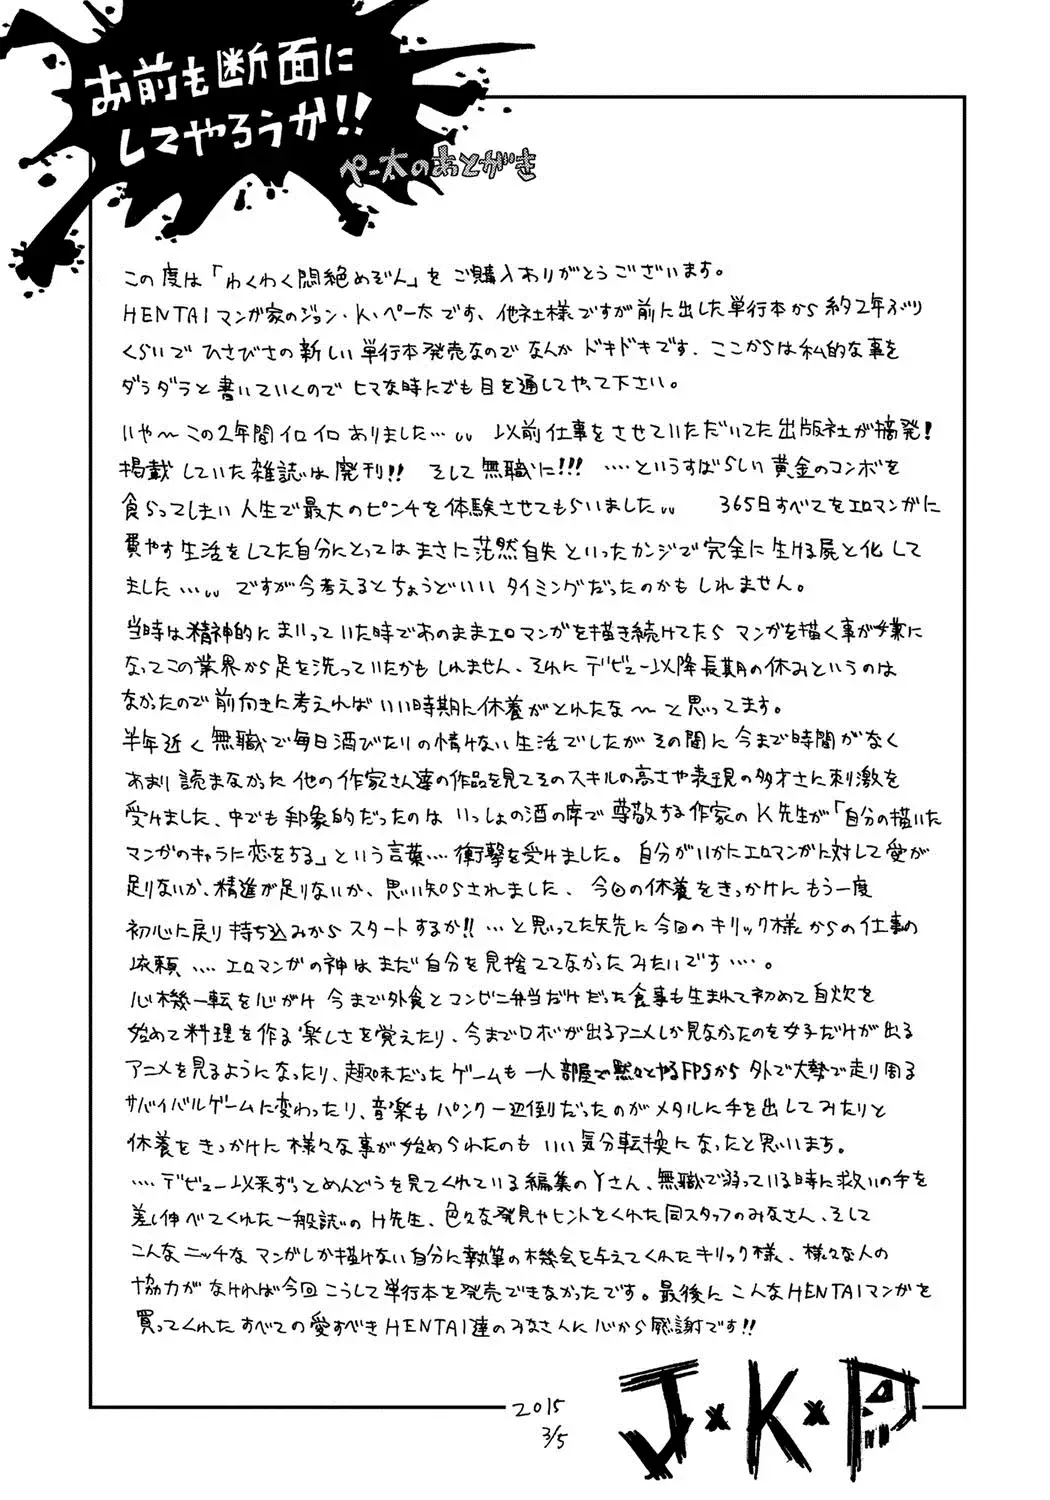 お前も断面に
してやろうか!!
ペー太のあとがき
この度は「わくわく悶絶めぞん」をご購入ありがとうございます。
HENTAIマンガ家のジョン・K・ペー太です、他社様ですが前に出した単行本から約2年ぶり
くらいでひさびさの新しい単行本発売なのでなんかドキドキです．ここからは私的な事を
ダラダラと書いていくのでヒマな時にでも目を通してやって下さい。
いや〜この2年間イロイロありました…。。 以前仕事をさせていただいてた出版社が摘発!
掲載していた雑誌は廃刊!! そして無職に!!! ‥‥というすばらしい黄金のコンボを
食らってしまい人生で最大のピンチを体験させてもらいました。。 365日すべてをエロマンガに
費やす生活をしてた自分にとってはまさに茫然自失といったカンジで完全に生ける屍と化して
ました…。。 ですが今考えるとちょうどいいタイミングだったのかもしれません。
当時は精神的にまいっていた時であのままエロマンガを描き続けてたらマンガを描く事が嫌に
なってこの業界から足を洗っていたかもしれません、それにデビュー以降長期の休みというのは
なかったので前向きに考えればいい時期に休養がとれたな〜と思ってます。
半年近く無職で毎日酒びたりの情けない生活でしたがその間に今まで時間がなく
あまり読まなかった他の作家さん達の作品を見てそのスキルの高さや表現の多才さに刺激を
受けました、中でも印象的だったのはいっしょの酒の席で尊敬する作家のK先生が「自分の描いた
マンガのキャラに恋をする」という言葉‥‥衝撃を受けました。自分がいかにエロマンガに対して愛が
足りないか、精進が足りないか、思い知らされました、今回の休養をきっかけにもう一度
初心に戻り持ち込みからスタートするか!! …と思ってた矢先に今回のキリック様からの仕事の
依頼‥‥エロマンガの神はまだ自分を見捨ててなかったみたいです‥‥。
心機一転を心がけ今まで外食とコンビニ弁当だけだった食事も生まれて初めて自炊を
始めて料理を作る楽しさを覚えたり、今までロボが出るアニメしか見なかったのを女子だけが出る
アニメを見るようになったり、趣味だったゲームも一人部屋で黙々とやるFPSから外で大勢で走り周る
サバイバルゲームに変わったり、音楽もパンク一辺倒だったのがメタルに手を出してみたりと
休養をきっかけに様々な事が始められたのもいい気分転換になったと思います。
‥‥デビュー以来ずっとめんどうを見てくれている編集のYさん、無職で弱っている時に救いの手を
差し伸べてくれた一般誌のH先生、色々な発見やヒントをくれた同スタッフのみなさん、そして
こんなニッチなマンガしか描けない自分に執筆の機会を与えてくれたキリック様、様々な人の
協力がなければ今回こうして単行本を発売できなかったです。最後にこんなHENTAIマンガを
買ってくれたすべての愛すべきHENTAI達のみなさんに心から感謝です!!
2015
3/5
J×K×P